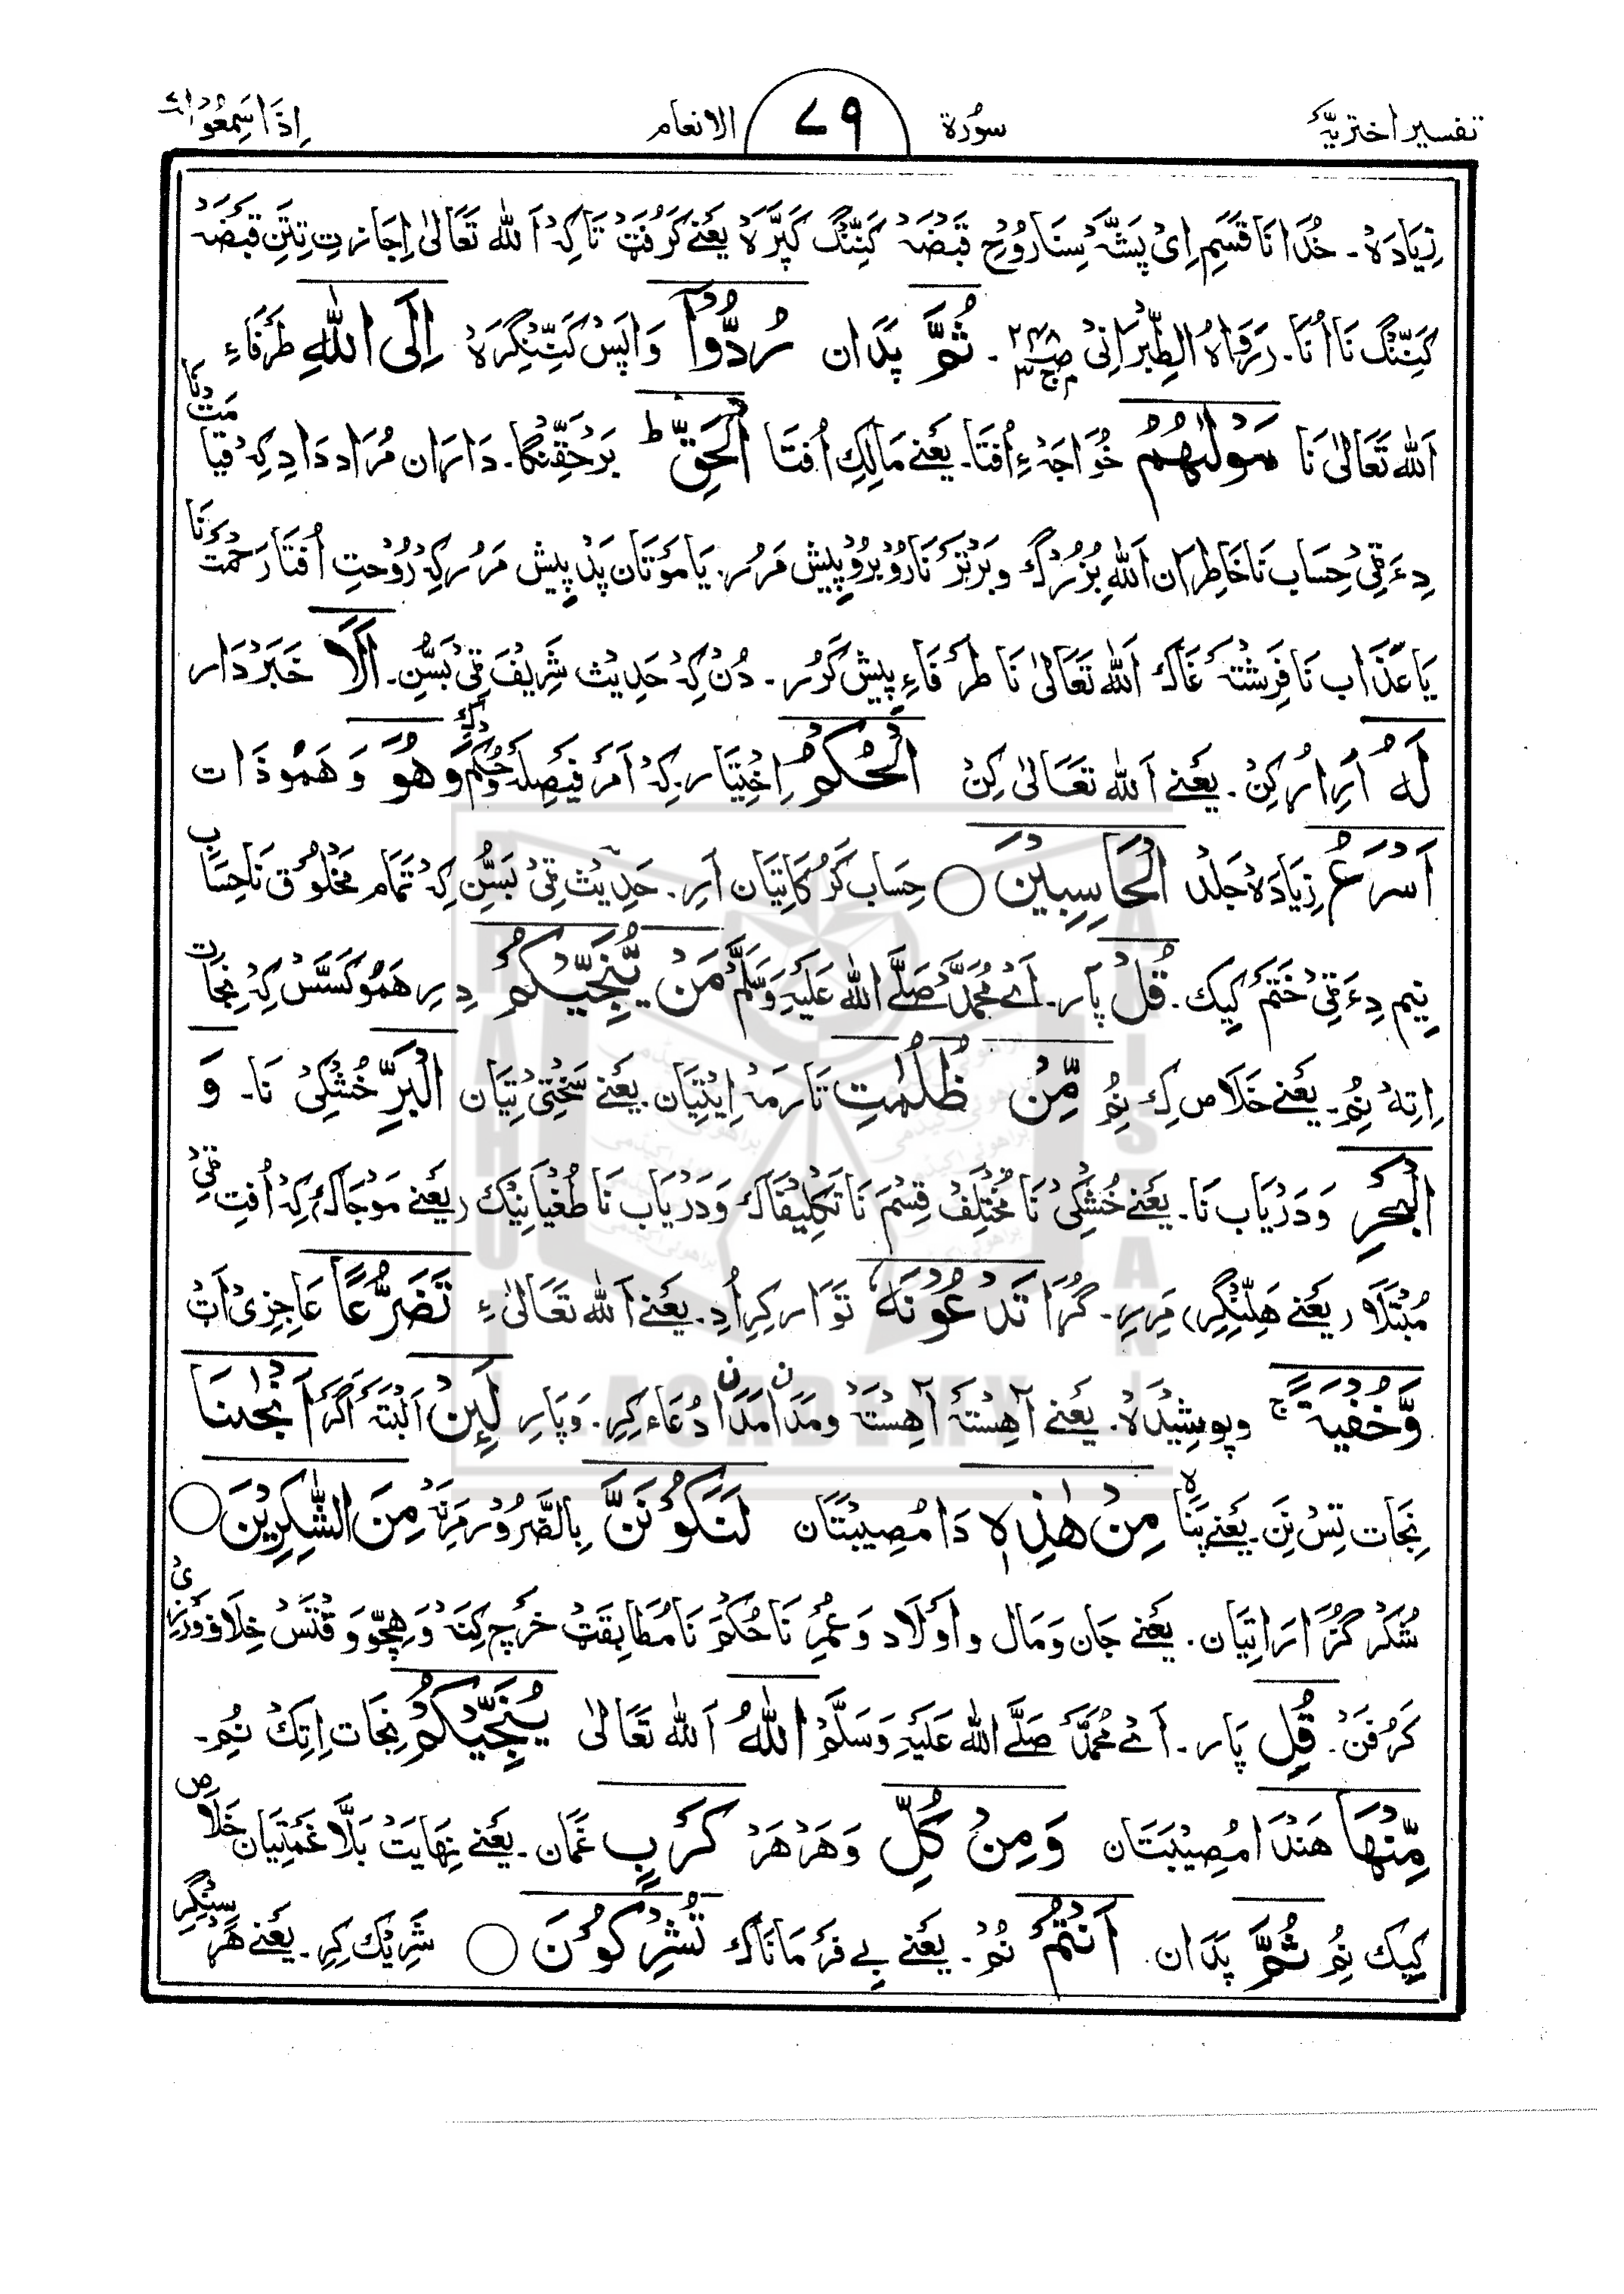 تفسیر اختریہ سُورۃ ۷۹ الانعام اِذَا سَمِعُوْا
زِیَادَہْ۔ خُدَا نَا قَسَم اِیْ پَشَّہْ سِنَا رُوْحِ قَبْضَہْ کَنِنْگ کَپَّرَہْ یَعْنِے کَرُفَتْ تَاکِہْ اَللہ تَعَالیٰ اِجَازتِ تِتَنِ قَبْضَہْ
کَنِنْگ نَا اُنَا۔ رَوَاہُ الطَّبْرَانِیْ ج۳ ۔ ثُمَّ پَدَان رُدُّوْٓا وَاپَس کَنِنْگِرَہْ اِلَى اللّٰهِ طَرَفَاءِ
اَللہ تَعَالیٰ نَا مَوْلٰىهُمُ خُوَاجَہْ ءِ اُفتَا۔ یَعْنِے مَالِکِ اُفتَا الْحَقِّ ط بَرْحَقِّنْگا۔ دَارَان مُرَاد دَادِ کِہْ قِیَامَتْ نَا
دِءَ ٹِیْ حِسَاب نَا خَاطِرَان اَللہِ بُزُرْگ و بَرْتَرْ نَا رُوْبُرُو پِیش مَرُر۔ یَا مَوْتَان پَدْ پِیش مَرُر کِہْ رُوْحتِ اُفتَا رَحْمَتْ نَا
یَا عَذَاب نَا فِرِشْتَہْ غَاک اَللہ تَعَالیٰ نَا طَرْفَاءِ پِیش کَرُر۔ دُنْ کِہْ حَدِیث شَرِیفَ ٹِیْ بَسُّنِ۔ اَلَا خَبَرْدَار
لَهُ اَرِ اُر کِنْ۔ یَعْنِے اَللہ تَعَالیٰ کِنْ الْحُكْمُ اِخْتِیَار۔ کِہْ اَمَر فَیْصِلَہْ وَ حُکُم وَهُوَ وَ هَمُوْ ذَات
اَسْرَعُ زِیَادَہْ جَلْد الْحَاسِبِیْنَ ○ حِسَاب کَرُکَاتِیَان اَرِ۔ حَدِیْث ٹِیْ بَسُّنِ کِہْ تَمَام مَخْلُوْق نَا حِسَاب
نِیم دِءَ ٹِیْ خَتَمْ کِیک۔ قُلْ پَار۔ اَےْ مُحَمَّدْ صَلَّے اللہ عَلَیْہِ وَسَلَّمْ مَنْ یُّنَجِّیْكُمْ دِیر هَمُوْ کَسَّسْ کِہْ نِجَات
اِتِہْ نُم۔ یَعْنِے خَلَاص کِ نُم مِّنْ ظُلُمٰتِ تَارَمَہْ اِیْتِیَان۔ یَعْنِے سَخْتِیْ تِیَان الْبَرِّ خُشْکِیْ نَا۔ وَ
الْبَحْرِ وَ دَرْیَاب نَا۔ یَعْنِے خُشْکِیْ نَا مُخْتَلِف قِسْم نَا تَکْلِیْفَاک وَ دَرْیَاب نَا طُغْیَانِیْک (یَعْنِے مَوْجَاک) کِہْ اُفتِ ٹِیْ
مُبْتَلَا (یَعْنِے هَلِنْگِر) مَرِیرِ۔ گُڑَا تَدْعُوْنَهٗ تَوَّار کِرِ اُدِ۔ یَعْنِے اَللہ تَعَالیٰ ءِ تَضَرُّعًا عَاجِزِیْ اَتْ
وَّخُفْیَةً ج و پوشِیْدَہْ۔ یَعْنِے آهِسْتَہْ آهِسْتَہْ و مَدَان مَدَان دُعَاء کِرِ۔ وَ پَارِ لَئِنْ اَلْبَتَّہْ اَگَرْ اَنْجٰىنَا
نِجَات تِسْ نِنِ۔ یَعْنِے پَنَاہ مِنْ هٰذِهٖ دَا مُصِیْبَتَان لَنَكُوْنَنَّ بِالضَّرُوْر مَرِنَہْ مِنَ الشّٰكِرِیْنَ ○
شُکْر گُزَاراتِیَان۔ یَعْنِے جَان وَ مَال و اَوْلَاد وَ عُمُر نَا حُکُمْ نَا مُطَابِقَتْ خَرْچ کِنَہْ وَ هِچُّو وَقْتَسْ خِلَاف وَرْزِیْ
کَرُفَنْ۔ قُلِ پَار۔ اَےْ مُحَمَّدْ صَلَّے اللہ عَلَیْہِ وَسَلَّمْ اللّٰهُ اَللہ تَعَالیٰ یُنَجِّیْكُمْ نِجَات اِتِکْ نُم۔
مِّنْهَا هَنْدَا مُصِیْبَتَان وَمِنْ كُلِّ وَ هَرْ هَرْ كَرْبٍ غَمَان۔ یَعْنِے نِهَایَتْ بَلَّا غَمْتِیَان خَلَاص
کِیک نُم ثُمَّ پَدَان اَنْتُمْ نُمْ۔ یَعْنِے بِے فَرْمَانَاک تُشْرِكُوْنَ ○ شَرِیْک کِرِ۔ یَعْنِے هَرْ